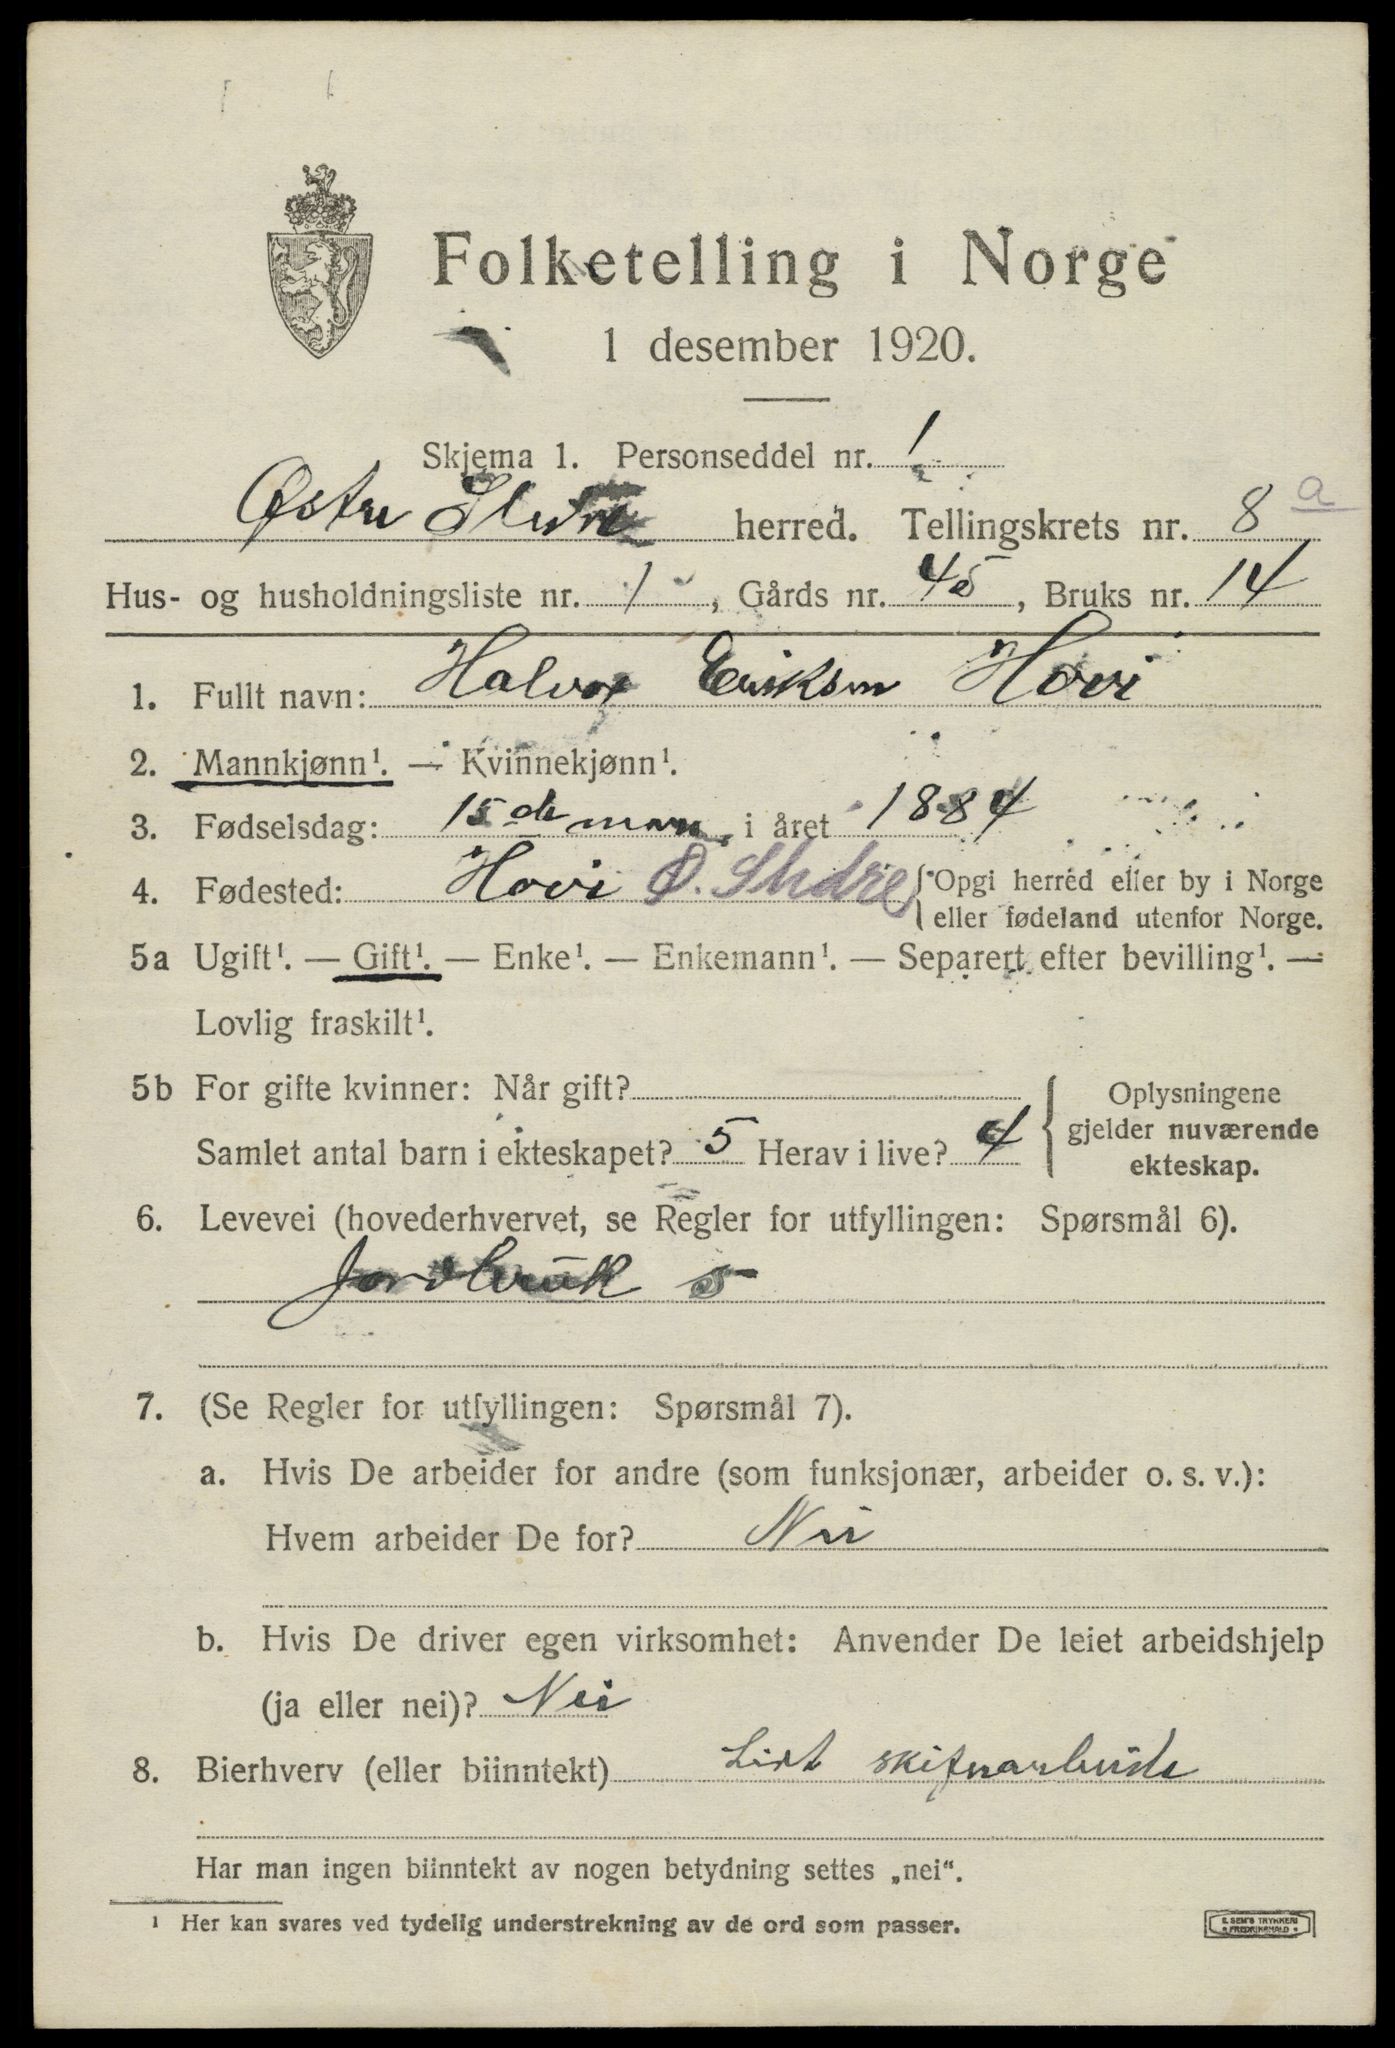 Folketelling i Norge
1 desember 1920.
Skjema 1. Personseddel nr. 1
Østre Slidre herred. Tellingskrets nr. 8 a
Hus- og husholdningsliste nr. 1, Gårds nr. 45, Bruks nr. 14
1. Fullt navn: Halvor Eriksen Hovi
2. Mannkjønn¹. — Kvinnekjønn¹.
3. Fødselsdag: 15de mars, i året 1884
4. Fødested: Hovi Ø. Slidre {Opgi herred eller by i Norge
eller fødeland utenfor Norge.
5a Ugift¹. — Gift¹. — Enke¹. — Enkemann¹. — Separert efter bevilling¹. —
Lovlig fraskilt¹.
5b For gifte kvinner: Når gift? { Oplysningene
Samlet antal barn i ekteskapet? 5 Herav i live? 4 gjelder nuværende
ekteskap.
6. Levevei (hovederhvervet, se Regler for utfyllingen: Spørsmål 6).
Jordbruk s
7. (Se Regler for utfyllingen: Spørsmål 7).
a. Hvis De arbeider for andre (som funksjonær, arbeider o. s. v.):
Hvem arbeider De for? Nei
b. Hvis De driver egen virksomhet: Anvender De leiet arbeidshjelp
(ja eller nei)? Nei
8. Bierhverv (eller biinntekt) Lidt skiferarbeide
Har man ingen biinntekt av nogen betydning settes „nei“.
¹ Her kan svares ved tydelig understrekning av de ord som passer.
E. SEM'S TRYKKERI
• FREDRIKSHALD •